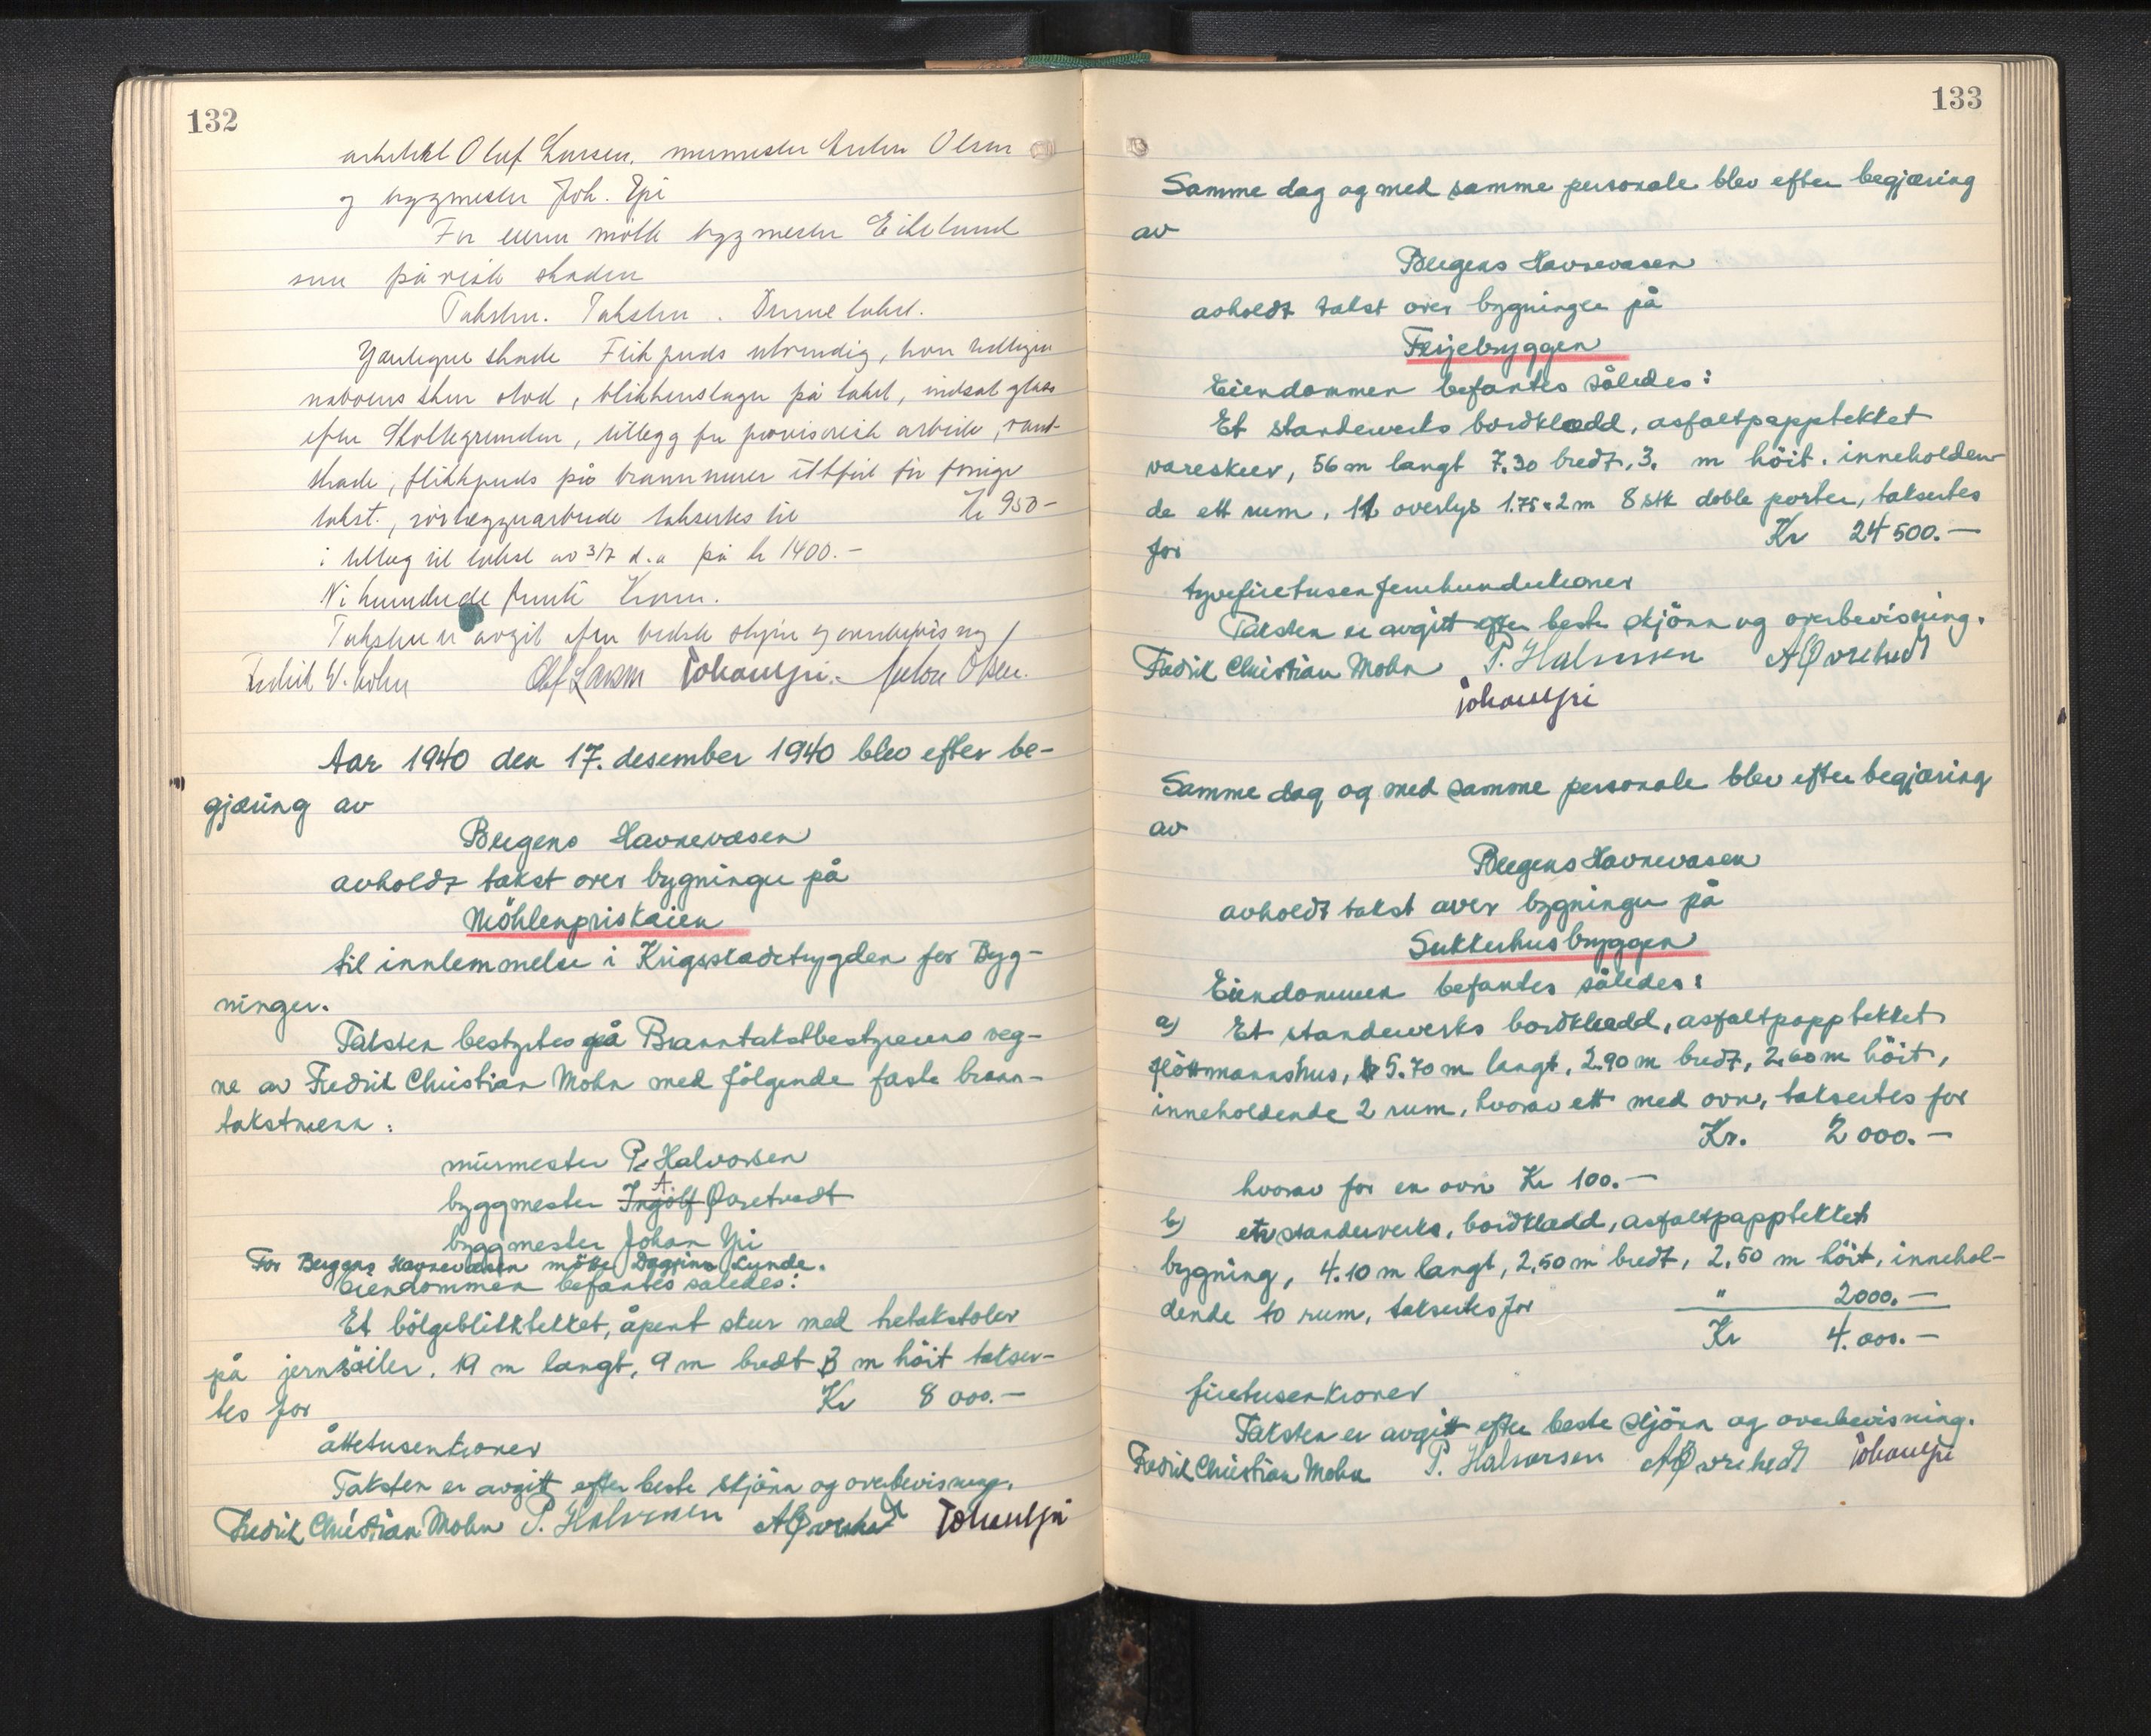 132
arkitekt Oluf Larsen, murmester Anton Olsen
og byggmester Joh. Ypi
For eieren møtte byggmester Eikelund
som påviste skaden
Taksten. Taksten. Denne takst.
Ytterligere skade Flikpuds utvendig, hvor tidligere
naboens skur stod, blikkenslager på taket, indsat glass
efter Skoltegrunden, tillegg for provisorisk arbeide, vand-
skade, flikkpuds på brannmurer
takst., rørleggerarbeide taksertes til kr 950-
i tillæg til takst av 3/7 d.a på kr 1400.-
Ni hundrede femti Kroner.
Taksten er avgit efter bedste skjøn og overbevisning
Fredrik W. Mohn Oluf Larsen Johan Ypi. Anton Olsen.
Aar 1940 den 17. desember 1940 blev efter be-
gjæring av
Bergens Havnevæsen
avholdt takst over bygninger på
Möhlenpriskaien
til innlemmelse i Krigsskadetrygden for Byg-
ninger.
Taksten bestyrtes på Branntakstbestyrerens veg-
ne av Fredrik Christian Mohn med følgende faste brann-
takstmenn:
murmester P. Halvorsen
byggmester Ingolf A. Øvretvedt
byggmester Johan Ypi
For Bergens Havnevæsen møtte Dagfinn Lunde.
Eiendommen befantes således:
Et bölgeblikktekket, åpent skur med tretakstoler
på jernsöiler. 19 m langt, 9 m bredt 3 m höit takser-
tes for Kr 8 000.-
åttetusenkroner
Taksten er avgitt efter beste skjönn og overbevisning.
Fredrik Christian Mohn P. Halvorsen A Øvretvedt Johan Ypi
133
Samme dag og med samme personale blev efter begjæring
av
Bergens Havnevæsen
avholdt takst over bygninger på
Festjebryggen
Eiendommen befantes således:
Et standerverks bordklædd, asfaltpapptekket
vareskur, 56 m langt 7.30 bredt, 3. m höit. inneholden-
de ett rum, 11 overlys 1.75 x 2 m 8 stk doble porter, taksertes
for Kr 24 500.-
tyvefiretusenfemhundrekroner
Taksten er avgitt efter beste skjönn og overbevisning.
Fredrik Christian Mohn P. Halvorsen A Øvretvedt
Johan Ypi
Samme dag og med samme personale blev efter begjæring
av
Bergens Havnevæsen
avholdt takst over bygninger på
Sukkerhusbryggen
Eiendommen befantes således:
a) Et standerverks bordklædd, asfaltpapptekket
flöttmannshus, 5.70 m langt, 2.90 m bredt, 2.60 m höit,
inneholdende 2 rum, hvorav ett med ovn, taksertes for
Kr. 2 000.-
hvorav for en ovn Kr 100.-
b) et standerverks, bordklædd, asfaltpapptekket
bygning, 4.10 m langt, 2,50 m bredt, 2,50 m höit, innehol-
dende to rum, taksertes for " 2000.-
Kr 4.000.-
firetusenkroner
Taksten er avgitt efter beste skjönn og overbevisning.
Fredrik Christian Mohn P. Halvorsen A Øvretvedt Johan Ypi